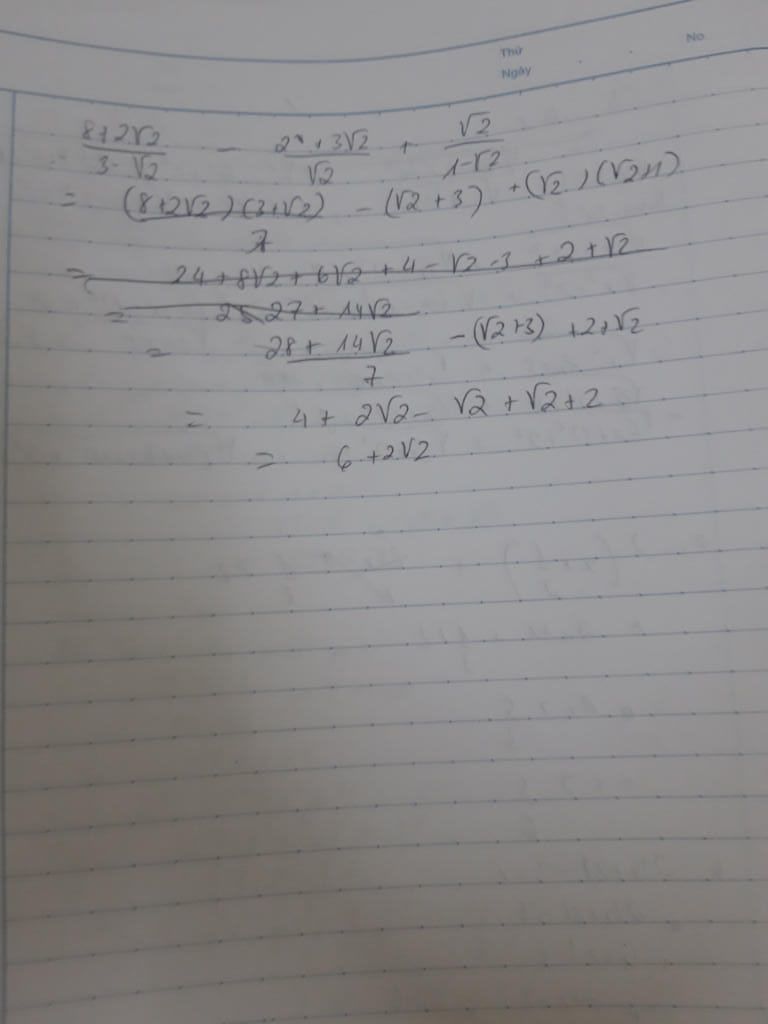 Thứ
No
Ngày
(8+2√2)/(3-√2) - (2+3√2)/√2 + √2/(1-√2)
= (8+2√2)(3+√2)/7 - (√2+3) + (√2)(√2+1)
= 24+8√2+6√2+4-√2-3+2+√2
= 27+14√2
= (28+14√2)/7 - (√2+3) + 2+√2
= 4+2√2-√2+√2+2
= 6+2√2